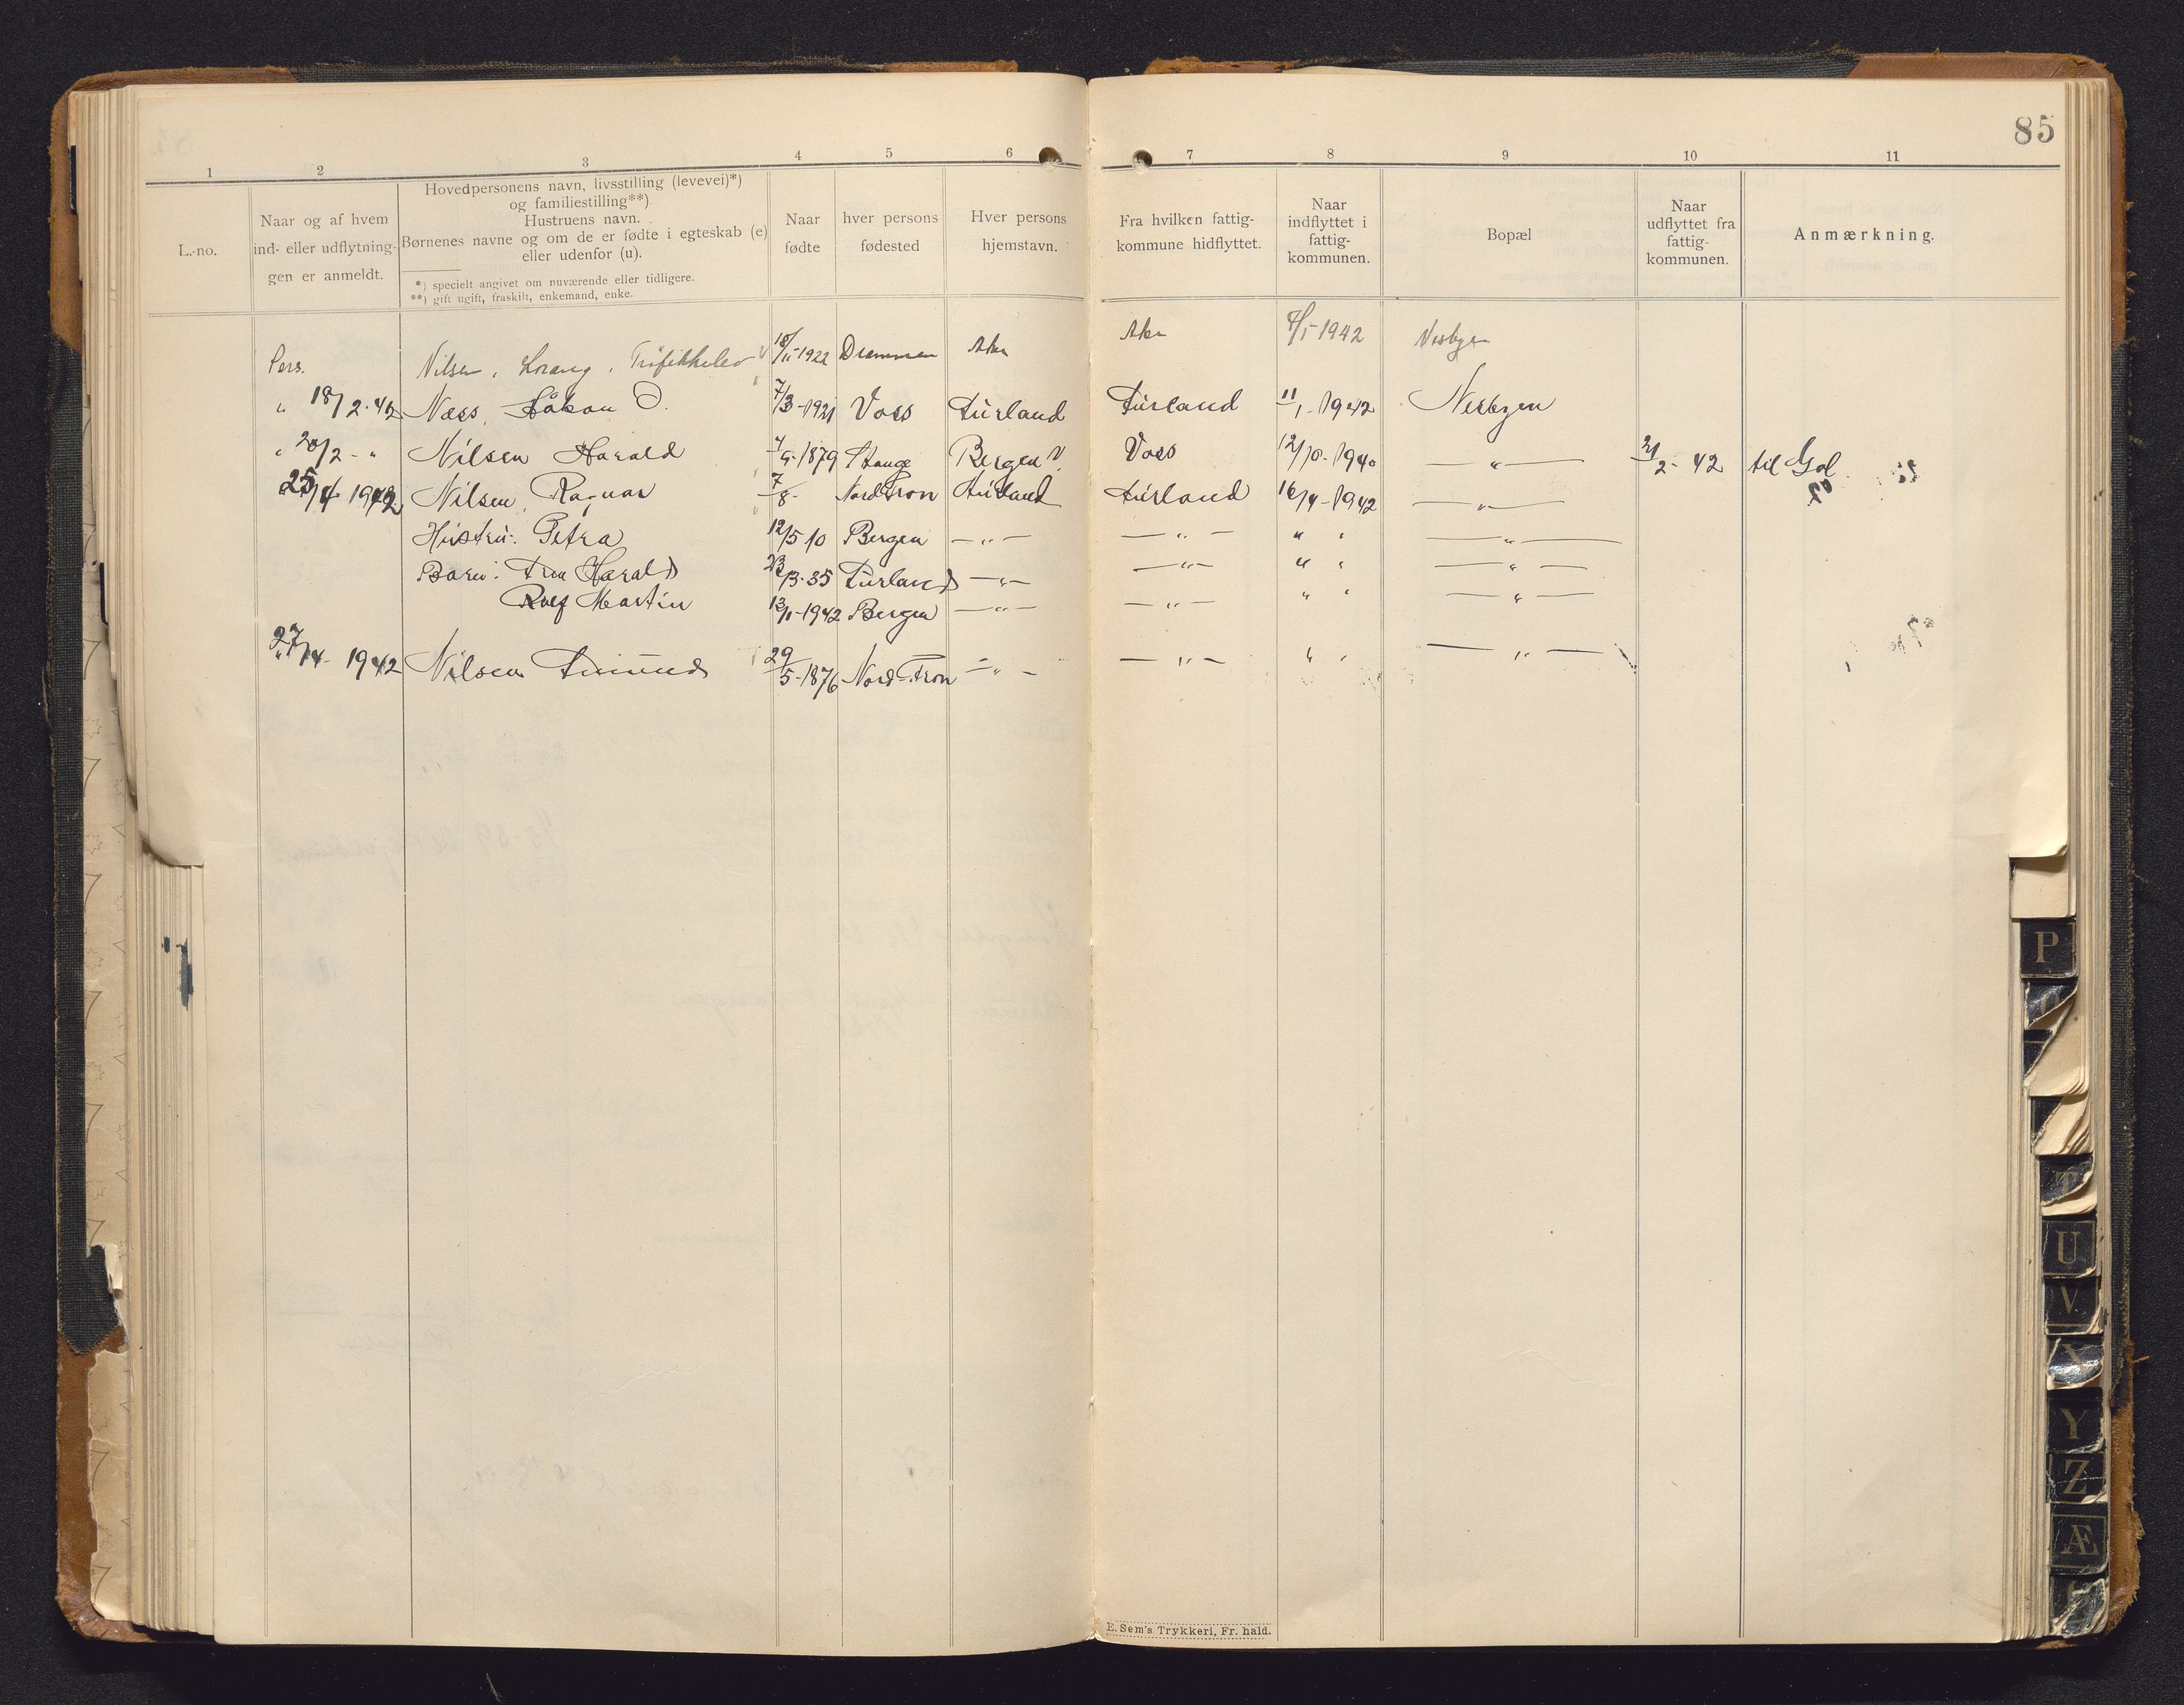 85
1 2 3 4 5 6 7 8 9 10 11
L.-no.
Naar og af hvem
ind- eller udflytnin-
gen er anmeldt.
Hovedpersonens navn, livsstilling (levevei)*)
og familiestilling**).
Hustruens navn.
Børnenes navne og om de er fødte i egteskab (e)
eller udenfor (u).
*) specielt angivet om nuværende eller tidligere.
**) gift ugift, fraskilt, enkemand, enke.
Naar
fødte
hver persons
fødested
Hver persons
hjemstavn.
Fra hvilken fattig-
kommune hidflyttet.
Naar
indflyttet i
fattig-
kommunen.
Bopæl
Naar
udflyttet fra
fattig-
kommunen.
Anmærkning.
Pers. Nilsen, Trafikkelev 18/11-1922 Drammen Aker Aker 8/1-1942 Nesbyen
" 18/2-42 Næss, Håkon O. 7/3-1921 Voss Aurland Aurland 11/1-1942 Nesbyen
" 20/2 - " Nilsen Harald 1879 Stange Bergen ? Voss 12/10-1940 — " — 21/2-42 til Gol
25/4 1942 Nilsen, Ragnar 7/8- Nord Fron Aurland Aurland 16/4-1942 — " —
Hustru: Petra 12/5 10 Bergen — " — — " — " " — " —
Barn: Harald 23/3-35 Aurland — " — — " — " " — " —
Rolf Martin 13/1-1942 Bergen — " — — " — " " — " —
27/4- 1942 Nilsen Amund 29/5-1876 Nord-Fron — " — — " — " " — " —
P
T
U
V
X
Y
Z
Æ
E. Sem's Trykkeri, Fr. hald.